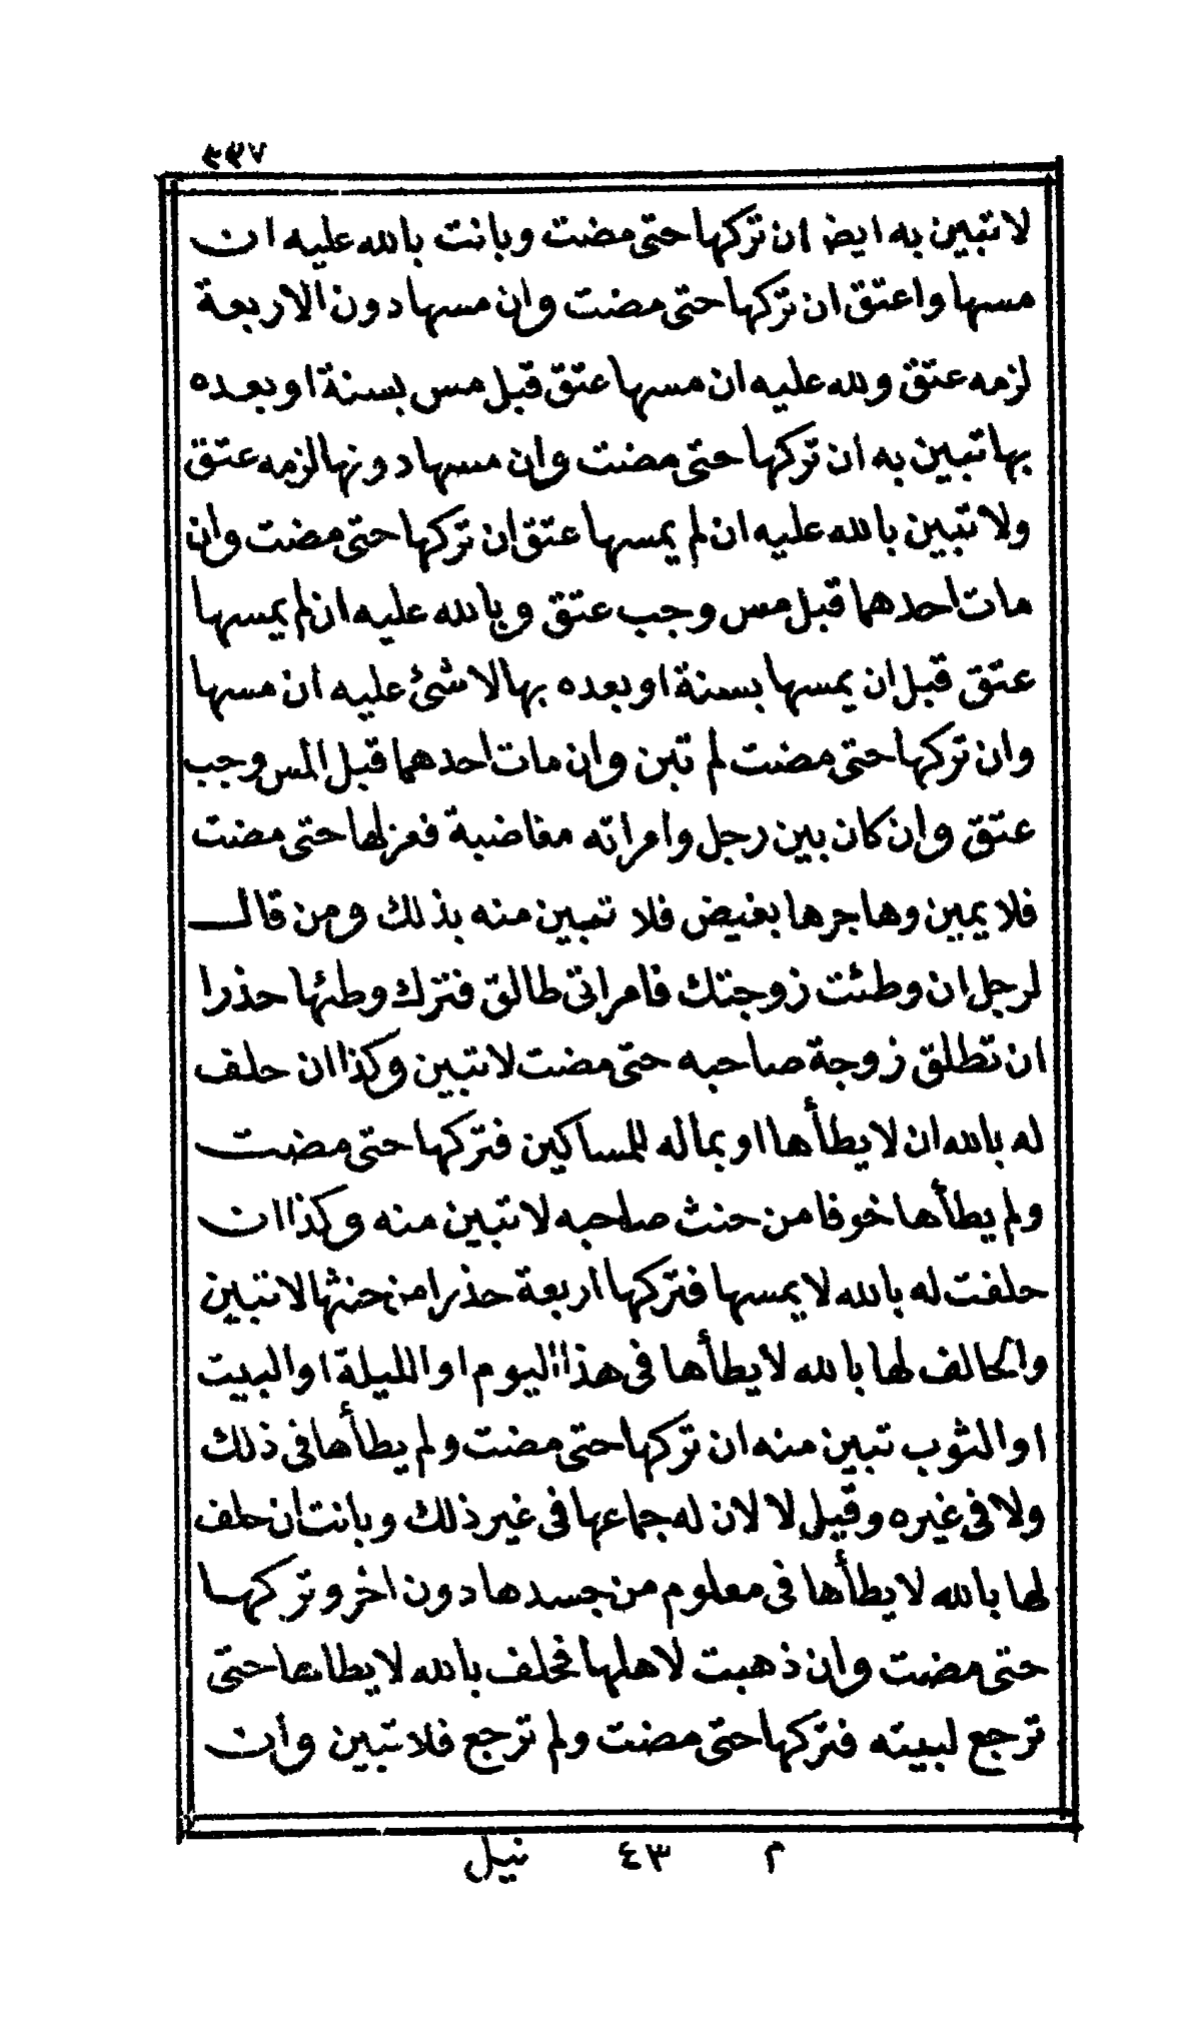 ٣٣٧
لا تبين به ايض ان تركها حتى مضت وبانت بالله عليه ان
مسها واعتق ان تركها حتى مضت وان مسها دون الاربعة
لزمه عتق ولله عليه ان مسها عتق قبل مس بسنة او بعده
بها تبين به ان تركها حتى مضت وان مسها دونها لزمه عتق
ولا تبين بالله عليه ان لم يمسها عتق ان تركها حتى مضت وان
مات احدهما قبل مس وجب عتق وبالله عليه ان لم يمسها
عتق قبل ان يمسها بسنة او بعده بها لا شئ عليه ان مسها
وان تركها حتى مضت لم تبن وان مات احدهما قبل المس وجب
عتق وان كان بين رجل وامراته مغاضبة فعزلها حتى مضت
فلا يمين وهاجرها بغيض فلا تبين منه بذلك ومن قال
لرجل ان وطئت زوجتك فامراتى طالق فترك وطئها حذرا
ان تطلق زوجة صاحبه حتى مضت لا تبين وكذا ان حلف
له بالله ان لا يطأها او بماله للمساكين فتركها حتى مضت
ولم يطأها خوفا من حنث صاحبه لا تبين منه وكذا ان
حلفت له بالله لا يمسها فتركها اربعة حذرا من حنثها لا تبين
والحالف لها بالله لا يطأها فى هذا اليوم او الليلة او البيت
او الثوب تبين منه ان تركها حتى مضت ولم يطأها فى ذلك
ولا فى غيره وقيل لا لان له جماعها فى غير ذلك وبانت ان حلف
لها بالله لا يطأها فى معلوم من جسدها دون اخر وتركها
حتى مضت وان ذهبت لاهلها فحلف بالله لا يطاها حتى
ترجع لبيته فتركها حتى مضت ولم ترجع فلا تبين وأن
م ٤٣ نيل